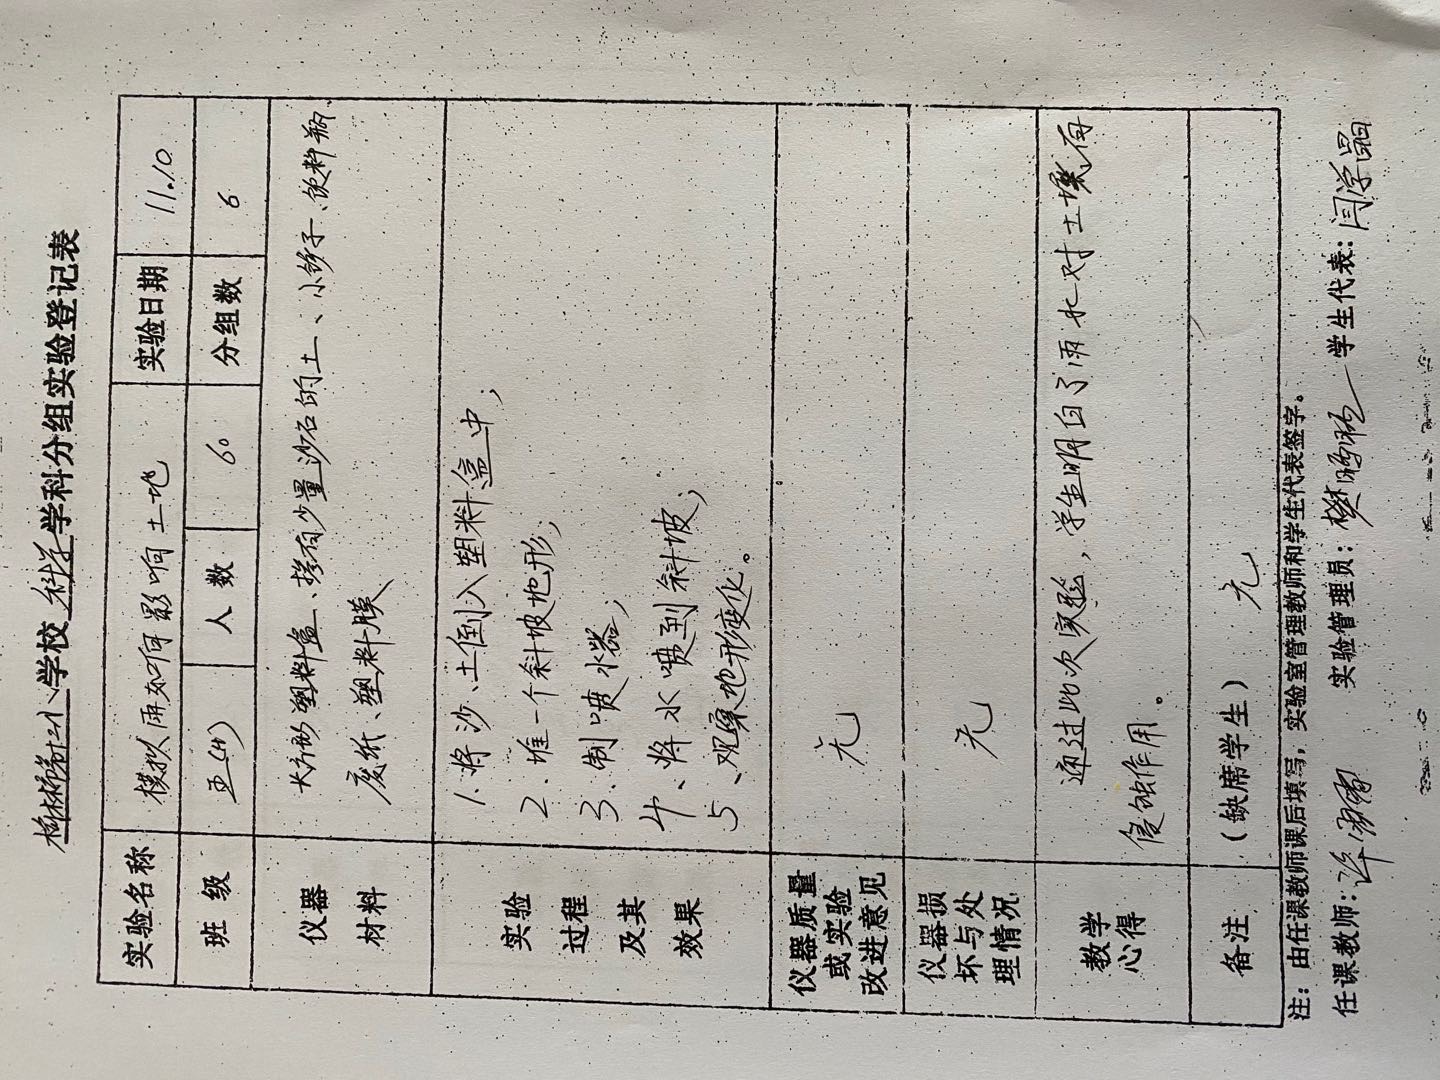 学校科学学科分组实验登记表
实验名称 模拟雨如何影响土地 实验日期 11.10
班 级 五(4) 人 数 60 分组数 6
仪器 长方形塑料盒、掺有少量沙石的土、小铲子、饮料瓶
材料 废纸、塑料膜
实验 1、将沙、土倒入塑料盒中;
过程 2、堆一个斜坡地形;
及其 3、制喷水器;
效果 4、将水喷到斜坡;
5、观察地形变化。
仪器质量
或实验 无
改进意见
仪器损
坏与处 无
理情况
教学 通过此次实验,学生明白了雨水对土壤有
心得 侵蚀作用。
备注 (缺席学生) 无
注:由任课教师课后填写,实验室管理教师和学生代表签字。
任课教师:许 实验管理员:樊鹏 学生代表:闫学晶